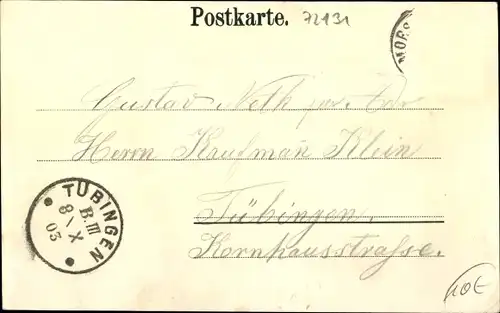 Postkarte.
72131
MOES
Gustav Neth per Adr
Herrn Kaufmañ Klein
Tübingen.
Kornhausstrasse.
TÜBINGEN
B.III
8 \ X
03
10€